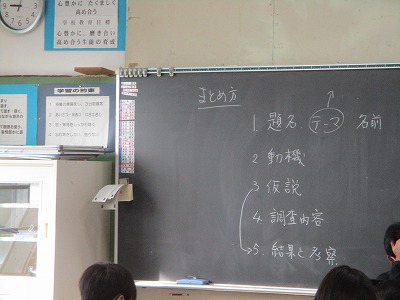 心豊かに たくましく
高め合う
学校教育目標
心豊かに、磨き合い
高め合う生徒の育成
学習の約束
まとめ方
1. 題名 テーマ 名前
2. 動機
3. 仮説
4. 調査内容
5. 結果と考察